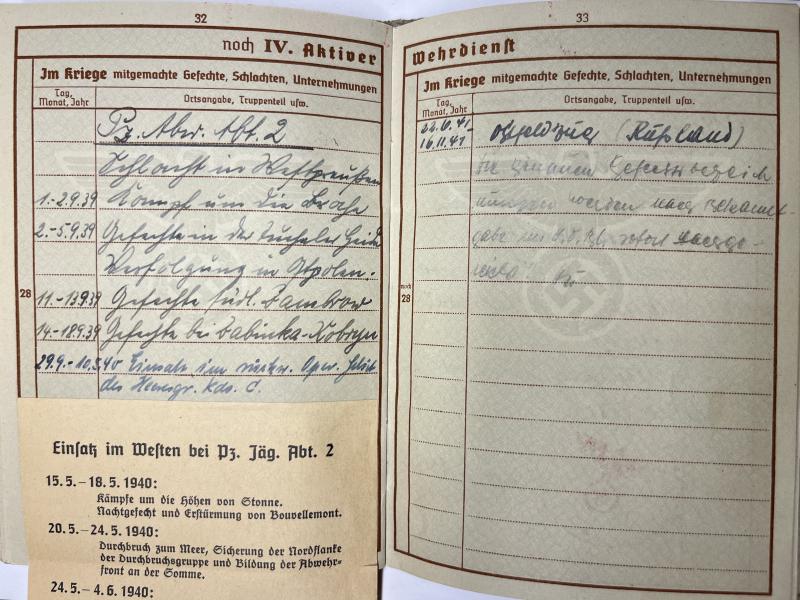 32
noch IV. Aktiver
Im Kriege mitgemachte Gefechte, Schlachten, Unternehmungen
Tag, Monat, Jahr
Ortsangabe, Truppenteil usw.
Pz. Abw. Abt. 2
Schlacht in Westpreußen
1.-2.9.39 Kampf um die Brahe
2.-5.9.39 Gefechte in der Tucheler Heide
Verfolgung in Ostpolen.
28
11.-13.9.39 Gefechte südl. Zambrow
14.-18.9.39 Gefechte bei Zabinka-Kobryn
29.9.-10.5.40 Einsatz im Oper. Gebiet
der Heeresgr. Kdo. C.
Einsatz im Westen bei Pz. Jäg. Abt. 2
15.5.–18.5.1940:
Kämpfe um die Höhen von Stonne.
Nachtgefecht und Erstürmung von Bouvellemont.
20.5.–24.5.1940:
Durchbruch zum Meer, Sicherung der Nordflanke
der Durchbruchsgruppe und Bildung der Abwehr-
front an der Somme.
24.5.–4.6.1940:
33
Wehrdienst
Im Kriege mitgemachte Gefechte, Schlachten, Unternehmungen
Tag, Monat, Jahr
Ortsangabe, Truppenteil usw.
22.6.41-
16.11.41 Ostfeldzug (Rußland)
Die genauen Gefechtsbezeich
nungen werden nach Bekannt-
gabe
noch 28